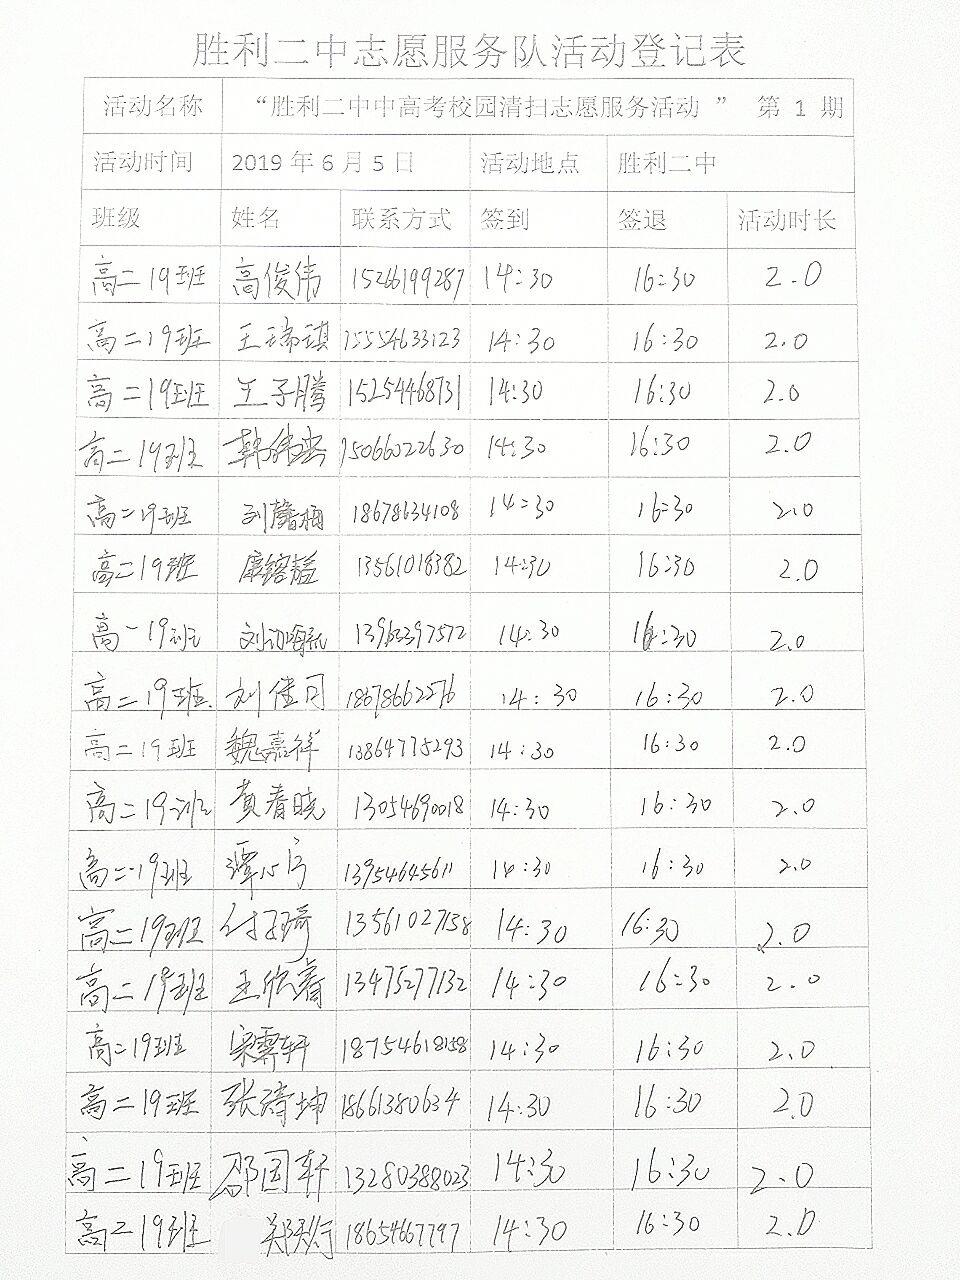 胜利二中志愿服务队活动登记表
活动名称 “胜利二中中高考校园清扫志愿服务活动 ” 第 1 期
活动时间 2019 年 6 月 5 日 活动地点 胜利二中
班级 姓名 联系方式 签到 签退 活动时长
高二19班 高俊伟 15266199287 14:30 16:30 2.0
高二19班 王瑞琪 15554633123 14:30 16:30 2.0
高二19班 王子腾 15254468731 14:30 16:30 2.0
高二19班 15066022630 14:30 16:30 2.0
高二19班 18678634108 14:30 16:30 2.0
高二19班 13561018382 14:30 16:30 2.0
高一19班 14:30 16:30 2.0
高二19班. 刘佳月 18678662576 14:30 16:30 2.0
高二19班 魏嘉祥 13864775293 14:30 16:30 2.0
高二19班 黄春晓 13054690018 14:30 16:30 2.0
高二19班 谭心宁 13954645611 14:30 16:30 2.0
高二19班 付子琦 13561027158 14:30 16:30 2.0
高二19班 王欣睿 13475277132 14:30 16:30 2.0
高二19班 宋霁轩 18754618158 14:30 16:30 2.0
高二19班 张清坤 18661380634 14:30 16:30 2.0
高二19班 邵国轩 13280388023 14:30 16:30 2.0
高二19班 18654667797 14:30 16:30 2.0